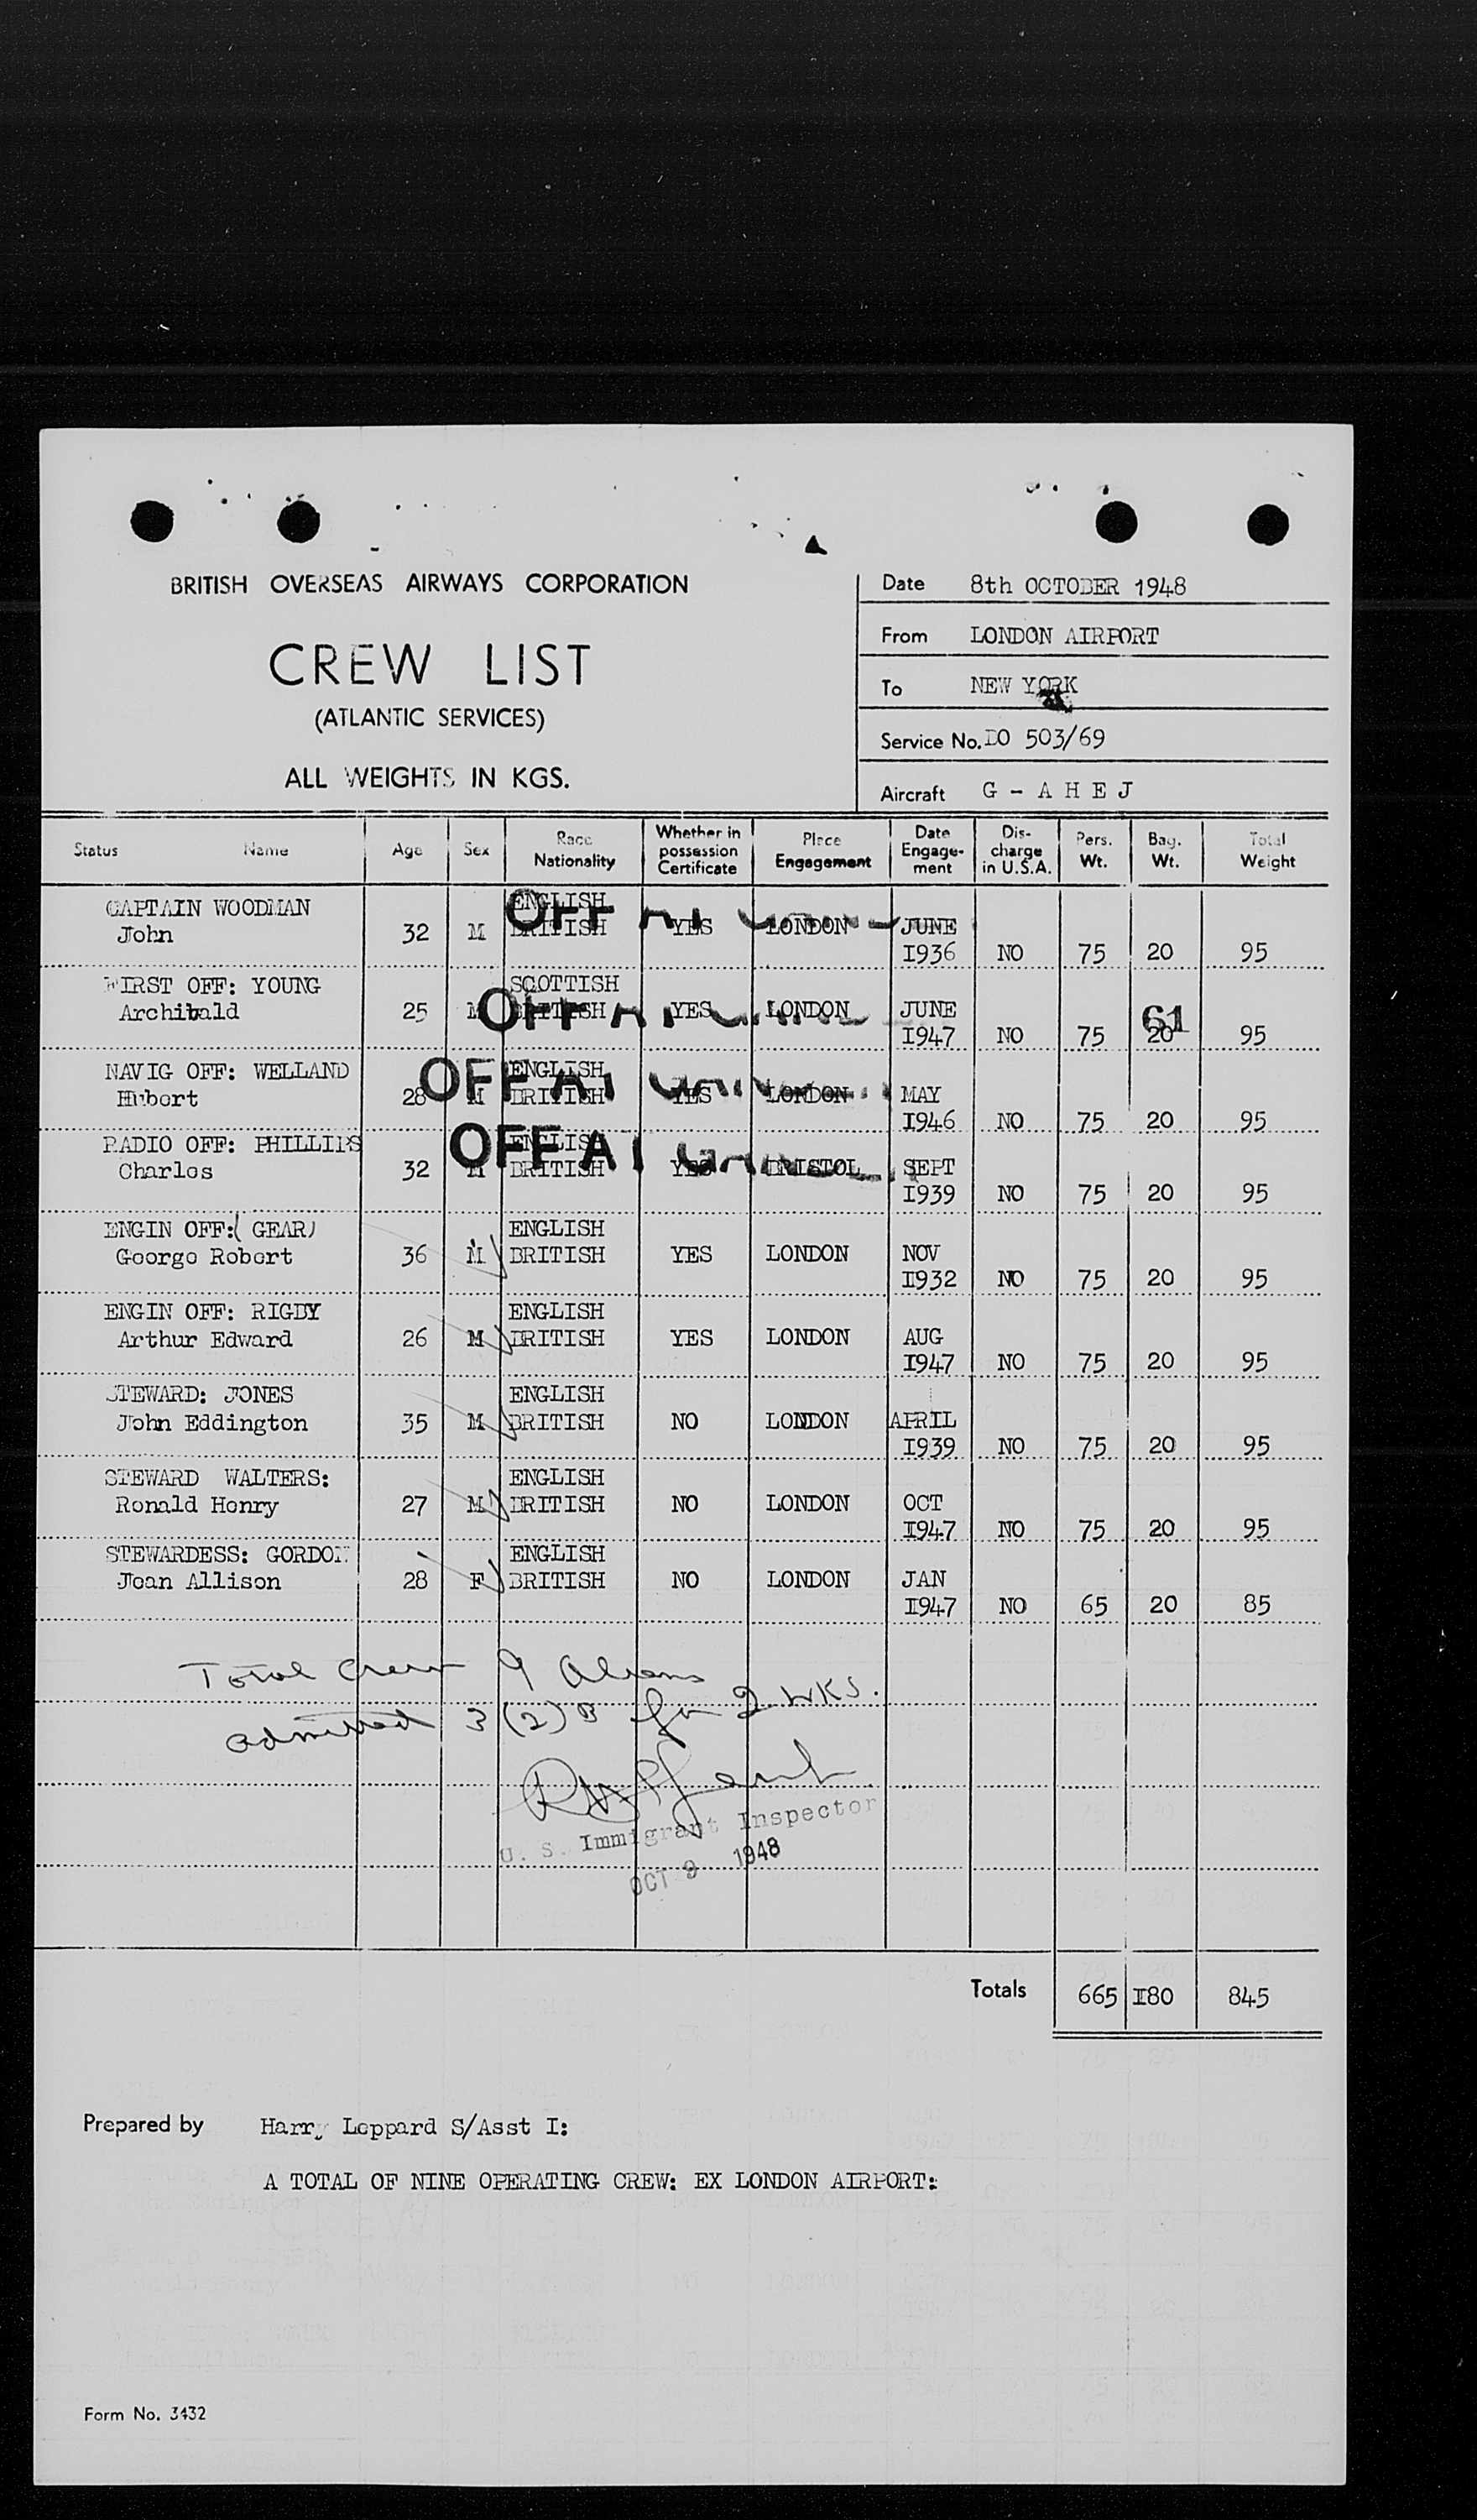 BRITISH OVERSEAS AIRWAYS CORPORATION
CREW LIST
(ATLANTIC SERVICES)
ALL WEIGHTS IN KGS.
Date 8th OCTOBER 1948
From LONDON AIRPORT
To NEW YORK
Service No. DO 503/69
Aircraft G - A H E J
Status Name Age Sex Race Nationality Whether in possession Certificate Place Engagement Date Engage-ment Dis-charge in U.S.A. Pers. Wt. Bag. Wt. Total Weight
CAPTAIN WOODMAN ENGLISH
John 32 M BRITISH YES LONDON JUNE
I936 NO 75 20 95
OFF AT
FIRST OFF: YOUNG SCOTTISH
Archibald 25 M BRITISH YES LONDON JUNE
I947 NO 75 20 95
OFF AT
61
NAVIG OFF: WELLAND ENGLISH
Hubert 28 M BRITISH YES LONDON MAY
I946 NO 75 20 95
OFF AT
RADIO OFF: PHILLIPS ENGLISH
Charles 32 M BRITISH YES BRISTOL SEPT
I939 NO 75 20 95
OFF AT
ENGIN OFF:( GEAR) ENGLISH
George Robert 36 M BRITISH YES LONDON NOV
I932 NO 75 20 95
ENGIN OFF: RIGBY ENGLISH
Arthur Edward 26 M BRITISH YES LONDON AUG
I947 NO 75 20 95
STEWARD: JONES ENGLISH
John Eddington 35 M BRITISH NO LONDON APRIL
I939 NO 75 20 95
STEWARD WALTERS: ENGLISH
Ronald Henry 27 M BRITISH NO LONDON OCT
I947 NO 75 20 95
STEWARDESS: GORDON ENGLISH
Joan Allison 28 F BRITISH NO LONDON JAN
I947 NO 65 20 85
Total Crew 9 Aliens
admitted 3(2)B for 2 WKS.
U. S. Immigrant Inspector
OCT 9 1948
Totals 665 I80 845
Prepared by Harry Leppard S/Asst I:
A TOTAL OF NINE OPERATING CREW: EX LONDON AIRPORT:
Form No. 3432